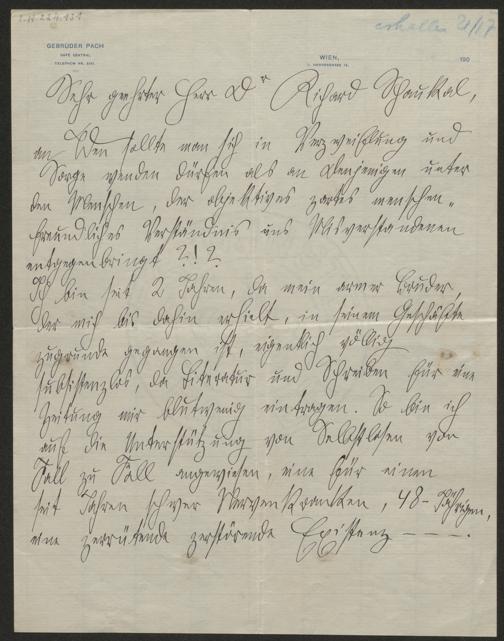 I.N.224.431
erhalten 21/07
GEBRÜDER PACH
CAFÉ CENTRAL
TELEPHON NR.
WIEN,
I., HERRENGASSE 14.
190
Sehr geehrter Herr Dr Richard Schaukal,
an Wen sollte man sich in Verzweiflung und
Sorge wenden dürfen als an Denjenigen unter
den Menschen, der objektives zartes menschen-
freundliches Verständnis uns Misverstandenen
entgegenbringt ?!?
Ich bin seit 2 Jahren, da mein armer Bruder,
der mich bis dahin erhielt, in seinem Geschäfte
zugrunde gegangen ist, eigentlich völlig
subsistenzlos, da Literatur und Schreiben für eine
Zeitung mir blutwenig eintragen. So bin ich
auf die Unterstützung von Selbstlosen von
Fall zu Fall angewiesen, eine für einen
seit Jahren schwer Nervenkranken, 48-Jährigen,
eine zerrüttende zerstörende Existenz ———.